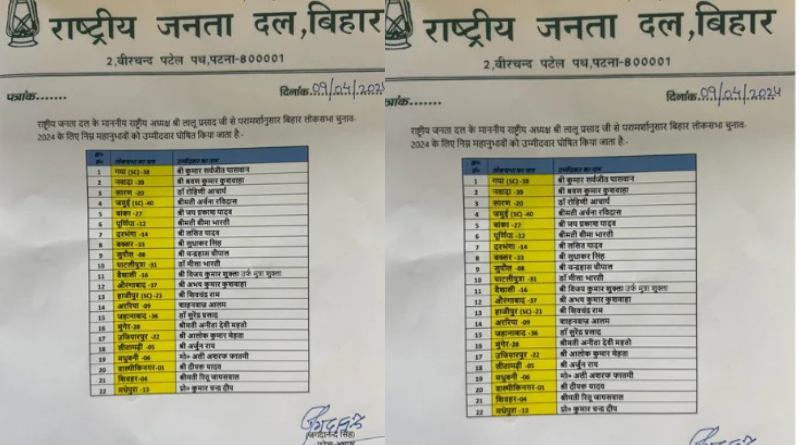 राष्ट्रीय जनता दल,बिहार
2,वीरचन्द पटेल पथ,पटना-800001
पत्रांक.......
दिनांक..09/04/2024
राष्ट्रीय जनता दल के माननीय राष्ट्रीय अध्यक्ष श्री लालू प्रसाद जी से परामर्शानुसार बिहार लोकसभा चुनाव-
2024 के लिए निम्न महानुभावों को उम्मीदवार घोषित किया जाता है:-
लोकसभा का नाम उम्मीदवार का नाम
1 गया (SC) -38 श्री कुमार सर्वजीत पासवान
2 नवादा -39 श्री श्रवण कुमार कुशवाहा
3 सारण -20 डॉ रोहिणी आचार्य
4 जमुई (SC) -40 श्रीमती अर्चना रविदास
5 बांका -27 श्री जय प्रकाश यादव
6 पूर्णिया -12 श्रीमती बीमा भारती
7 दरभंगा -14 श्री ललित यादव
8 बक्सर -33 श्री सुधाकर सिंह
9 सुपौल -08 श्री चन्द्रहास चौपाल
10 पाटलीपुत्र -31 डॉ मीसा भारती
11 वैशाली -16 श्री विजय कुमार शुक्ला उर्फ मुन्ना शुक्ला
12 औरंगाबाद -37 श्री अभय कुमार कुशवाहा
13 हाजीपुर (SC) -21 श्री शिवचंद्र राम
14 अररिया -09 शाहनवाज आलम
15 जहानाबाद -36 डॉ सुरेंद्र प्रसाद
16 मुंगेर -28 श्रीमती अनीता देवी महतो
17 उजियारपुर -22 श्री आलोक कुमार मेहता
18 सीतामढ़ी -05 श्री अर्जुन राय
19 मधुबनी -06 मो० अली अशरफ फातमी
20 वाल्मीकिनगर -01 श्री दीपक यादव
21 शिवहर -04 श्रीमती रितु जायसवाल
22 मधेपुरा -13 प्रो० कुमार चन्द्र दीप
(जगदानन्द सिंह)
राष्ट्रीय जनता दल,बिहार
2,वीरचन्द पटेल पथ,पटना-800001
दिनांक..09/04/2024
राष्ट्रीय जनता दल के माननीय राष्ट्रीय अध्यक्ष श्री लालू प्रसाद जी से परामर्शानुसार बिहार लोकसभा चुनाव-
2024 के लिए निम्न महानुभावों को उम्मीदवार घोषित किया जाता है:-
लोकसभा का नाम उम्मीदवार का नाम
1 गया (SC) -38 श्री कुमार सर्वजीत पासवान
2 नवादा -39 श्री श्रवण कुमार कुशवाहा
3 सारण -20 डॉ रोहिणी आचार्य
4 जमुई (SC) -40 श्रीमती अर्चना रविदास
5 बांका -27 श्री जय प्रकाश यादव
6 पूर्णिया -12 श्रीमती बीमा भारती
7 दरभंगा -14 श्री ललित यादव
8 बक्सर -33 श्री सुधाकर सिंह
9 सुपौल -08 श्री चन्द्रहास चौपाल
10 पाटलीपुत्र -31 डॉ मीसा भारती
11 वैशाली -16 श्री विजय कुमार शुक्ला उर्फ मुन्ना शुक्ला
12 औरंगाबाद -37 श्री अभय कुमार कुशवाहा
13 हाजीपुर (SC) -21 श्री शिवचंद्र राम
14 अररिया -09 शाहनवाज आलम
15 जहानाबाद -36 डॉ सुरेंद्र प्रसाद
16 मुंगेर -28 श्रीमती अनीता देवी महतो
17 उजियारपुर -22 श्री आलोक कुमार मेहता
18 सीतामढ़ी -05 श्री अर्जुन राय
19 मधुबनी -06 मो० अली अशरफ फातमी
20 वाल्मीकिनगर -01 श्री दीपक यादव
21 शिवहर -04 श्रीमती रितु जायसवाल
22 मधेपुरा -13 प्रो० कुमार चन्द्र दीप